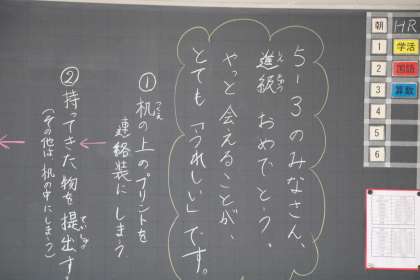 5-3のみなさん、
進級 おめでとう。
しんきゅう
やっと会えることが、
とても「うれしい」です。
① 机の上のプリントを
つくえ
連絡袋にしまう
② 持ってきた物を提出する
ていしゅつ
(その他は 机の中にしまう)
朝 HR
1 学活
2 国語
3 算数
4
5
6